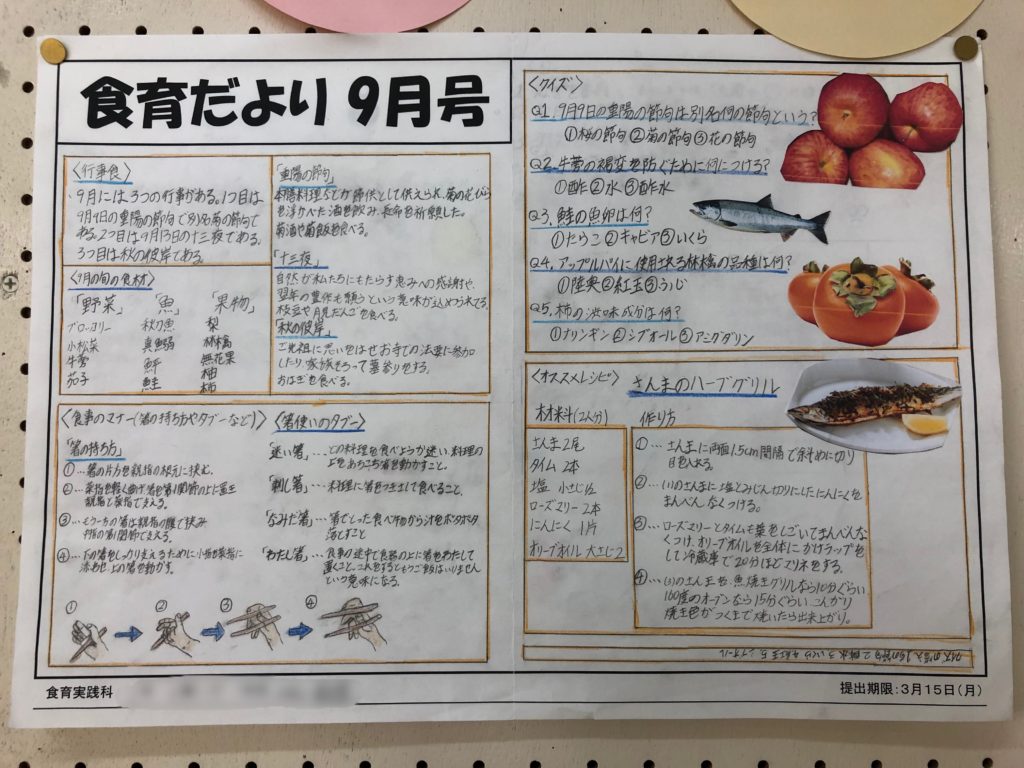 食育だより 9月号
〈行事食〉
9月には3つの行事がある。1つ目は
9月9日の重陽の節句で別名菊の節句で
ある。2つ目は9月13日の十三夜である。
3つ目は秋の彼岸である
「重陽の節句」
を浮かべた酒を飲み、長命を祈願した。
菊酒や菊飯を食べる。
「十三夜」
自然が私たちにもたらす恵みへの感謝や、
翌年の豊作を願うという意味が込めつられてる
枝豆や月見だんごを食べる。
「秋の彼岸」
ご先祖に思いをはせお寺での法要に参加
したり、家族そろって墓参りをする。
おはぎを食べる。
〈9月の旬の食材〉
「野菜」 「魚」 「果物」
ブロッコリー 秋刀魚 梨
小松菜 真鰯 林檎
牛蒡 無花果
茄子 鮭 柿
〈食事のマナー(箸の持ち方やタブーなど)〉
「箸の持ち方」
①…箸の片方を親指の根元に挟む。
②…薬指を軽く曲げ箸を第1関節の上に置き
親指と薬指で支える。
③…もう一方の箸は親指の腹で挟み
中指の第1関節で支える。
④…下の箸をしっかり支えるために小指を薬指に
添わせ上の箸を動かす。
① ② ③ ④
〈箸使いのタブー〉
「迷い箸」…どの料理を食べようか迷い、料理の
上をあちこち箸を動かすこと。
「刺し箸」…料理に箸をつきさして食べること。
「なみだ箸」…箸でとった食べ物から汁をポタポタ
落とすこと
「わたし箸」…食事の途中で食器の上に箸をわたして
置くこと。これをするともうご飯はいりません
という意味になる。
〈クイズ〉
Q1. 9月9日の重陽の節句は別名何の節句という?
①桜の節句 ②菊の節句 ③花の節句
Q2. 牛蒡の褐変を防ぐために何につける?
①酢 ②水 ③酢水
Q3. 鮭の魚卵は何?
①たらこ ②キャビア ③いくら
Q4. アップルパイに使用する林檎の品種は何?
①陸奥 ②紅玉 ③ふじ
Q5. 柿の渋味成分は何?
①ナリンギン ②シブオール ③アミグダリン
〈オススメレシピ〉 さんまのハーブグリル
材料(2人分)
さんま 2尾
タイム 2本
塩 小さじ1/2
ローズマリー 2本
にんにく 1片
オリーブオイル 大さじ2
作り方
①…さんまに両面1.5cm間隔で斜めに切り
目を入れる。
②…(1)のさんまに塩とみじん切りにしたにんにくを
まんべんなくつける。
③…ローズマリーとタイムも葉をしごいてまんべんな
くつけ、オリーブオイルを全体にかけラップを
して冷蔵庫で20分ほどマリネをする。
④…(3)のさんまを魚焼きグリルなら10分ぐらい
160度のオーブンなら15分ぐらい、こんがり
焼き色がつくまで焼いたら出来上がり。
食育実践科
提出期限:3月15日(月)